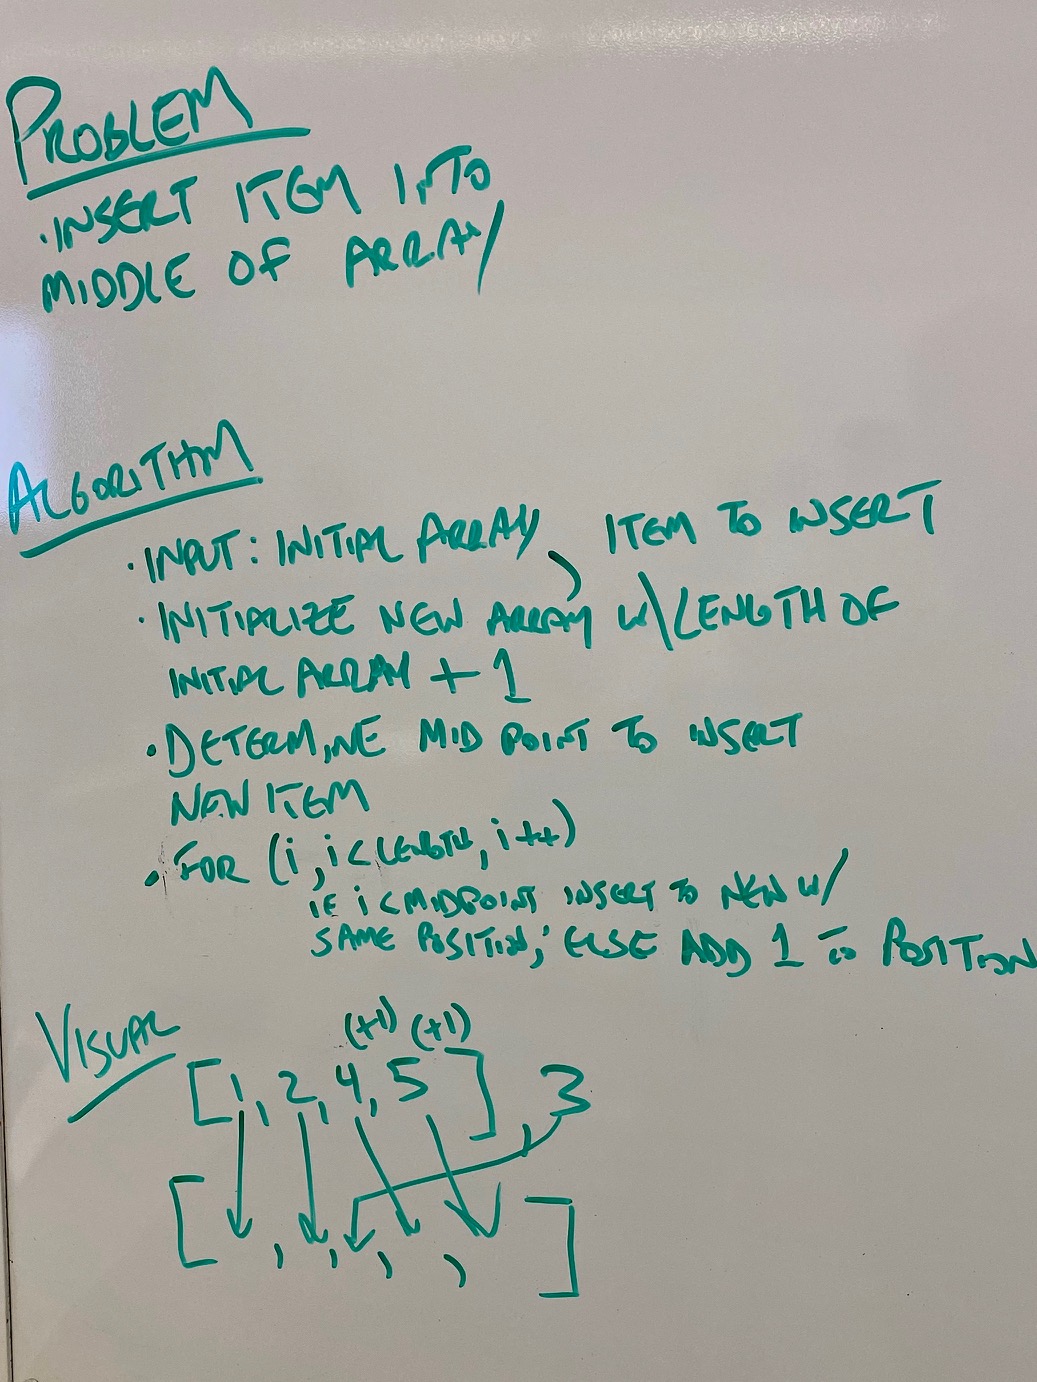 PROBLEM
• INSERT ITEM INTO
MIDDLE OF ARRAY
ALGORITHM
• INPUT: INITIAL ARRAY, ITEM TO INSERT
• INITIALIZE NEW ARRAY W/ LENGTH OF
INITIAL ARRAY + 1
• DETERMINE MID POINT TO INSERT
NEW ITEM
• FOR (i, i < LENGTH, i++)
IF i < MIDPOINT INSERT TO NEW W/
SAME POSITION; ELSE ADD 1 TO POSITION
VISUAL
(+1) (+1)
[1, 2, 4, 5] , 3
[ , , , , ]